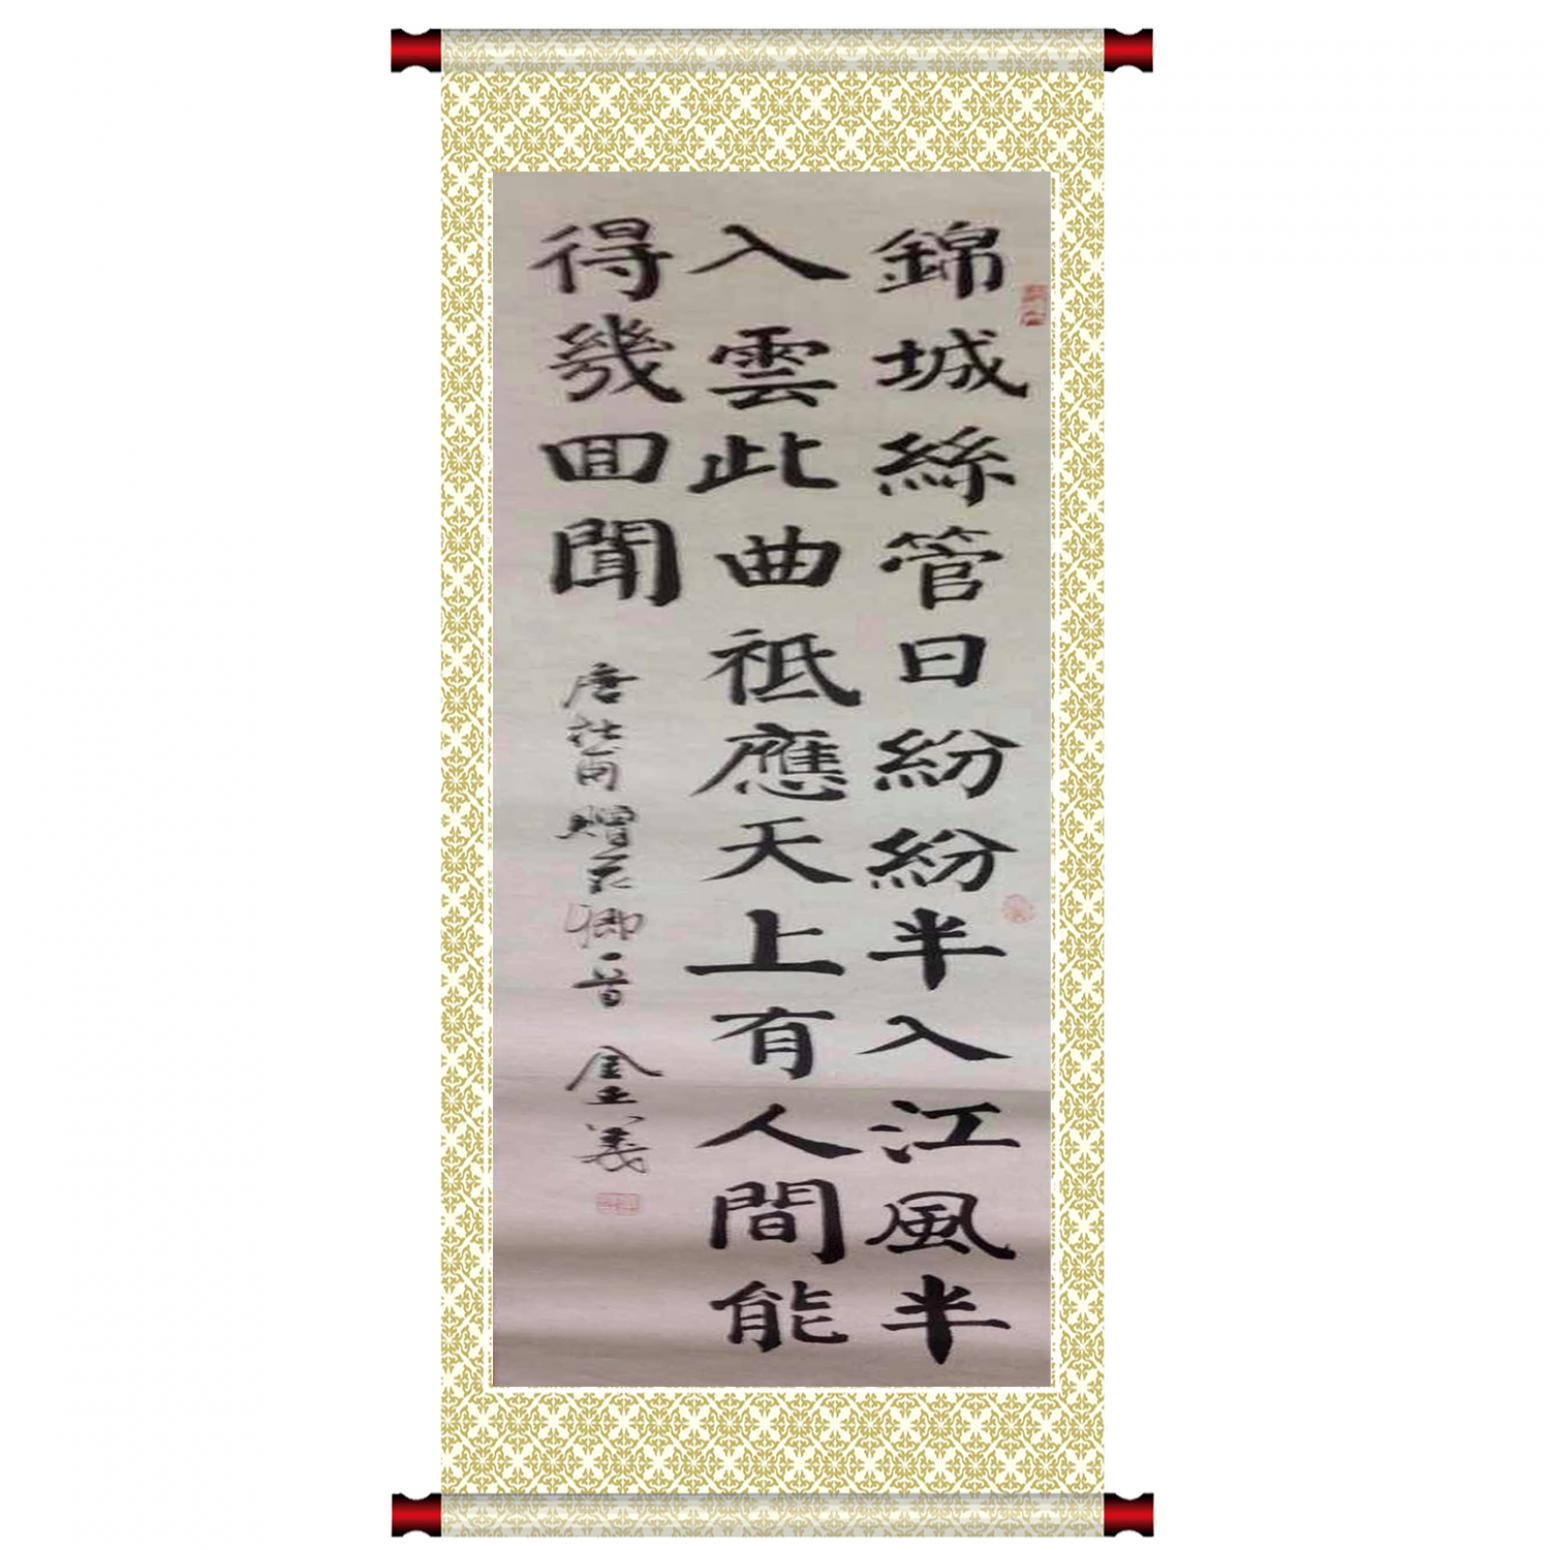 錦城絲管日紛紛半入江風半
入雲此曲祗應天上有人間能
得幾回聞
唐杜甫贈花卿一首 金玉義